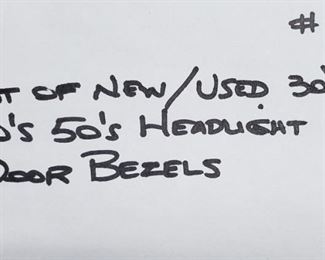 #
T OF NEW/USED 30'
0'S 50'S HEADLIGHT
DOOR BEZELS